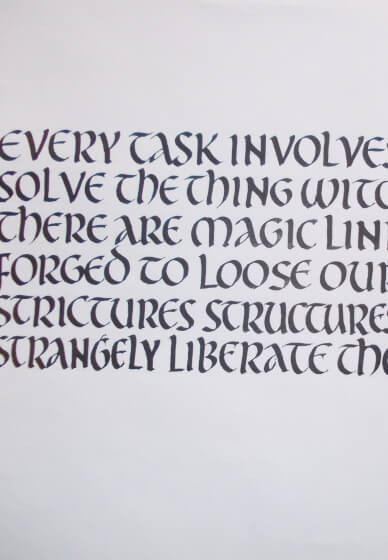 EVERY TASK INVOLVES
SOLVE THE THING WITH
THERE ARE MAGIC LIN
FORGED TO LOOSE OUR
STRICTURES STRUCTURES
STRANGELY LIBERATE THE